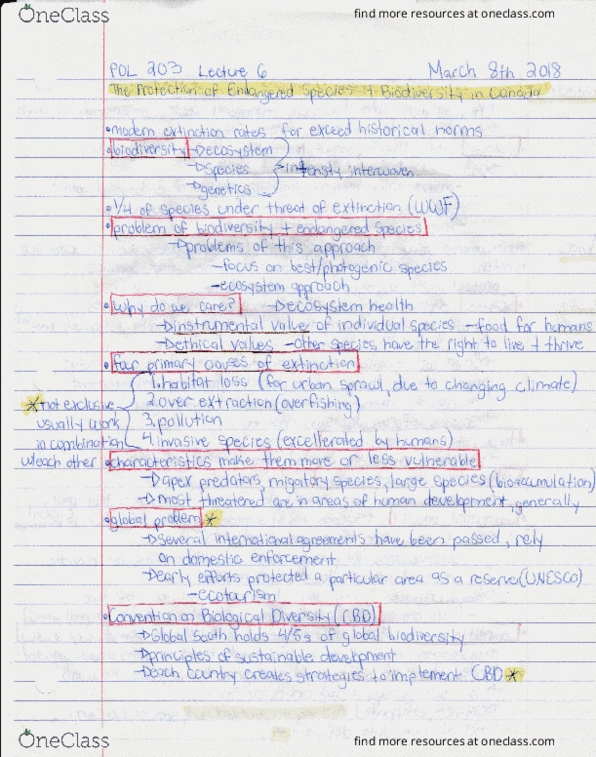 OneClass find more resources at oneclass.com
POL 203 Lecture 6 March 8th 2018
The Protection of Endangered Species + Biodiversity in Canada
•modern extinction rates far exceed historical norms
•biodiversity →ecosystem
→species -intensly interwoven
→genetics
•1/4 of species under threat of extinction (WWF)
•problem of biodiversity + endangered species
→problems of this approach
-focus on best/photogenic species
-ecosystem approach
•why do we care? →ecosystem health
→instrumental value of individual species -food for humans
→ethical values -other species have the right to live + thrive
•four primary causes of extinction
1.habitat loss (for urban sprawl, due to changing climate)
*not exclusive 2.over extraction (overfishing)
usually work 3.pollution
in combination 4.invasive species (excellerated by humans)
w/each other •characteristics make them more or less vulnerable
→apex predators, migatory species, large species (bioaccumulation)
→most threatened are in areas of human development, generally
•global problem *
→several international agreements have been passed, rely
on domestic enforcement
→early efforts protected a particular area as a reserve (UNESCO)
-ecotourism
•Convention on Biological Diversity (CBD)
→Global south holds 4/5s of global biodiversity
→principles of sustainable development
→each country creates strategies to implement CBD *
OneClass find more resources at oneclass.com